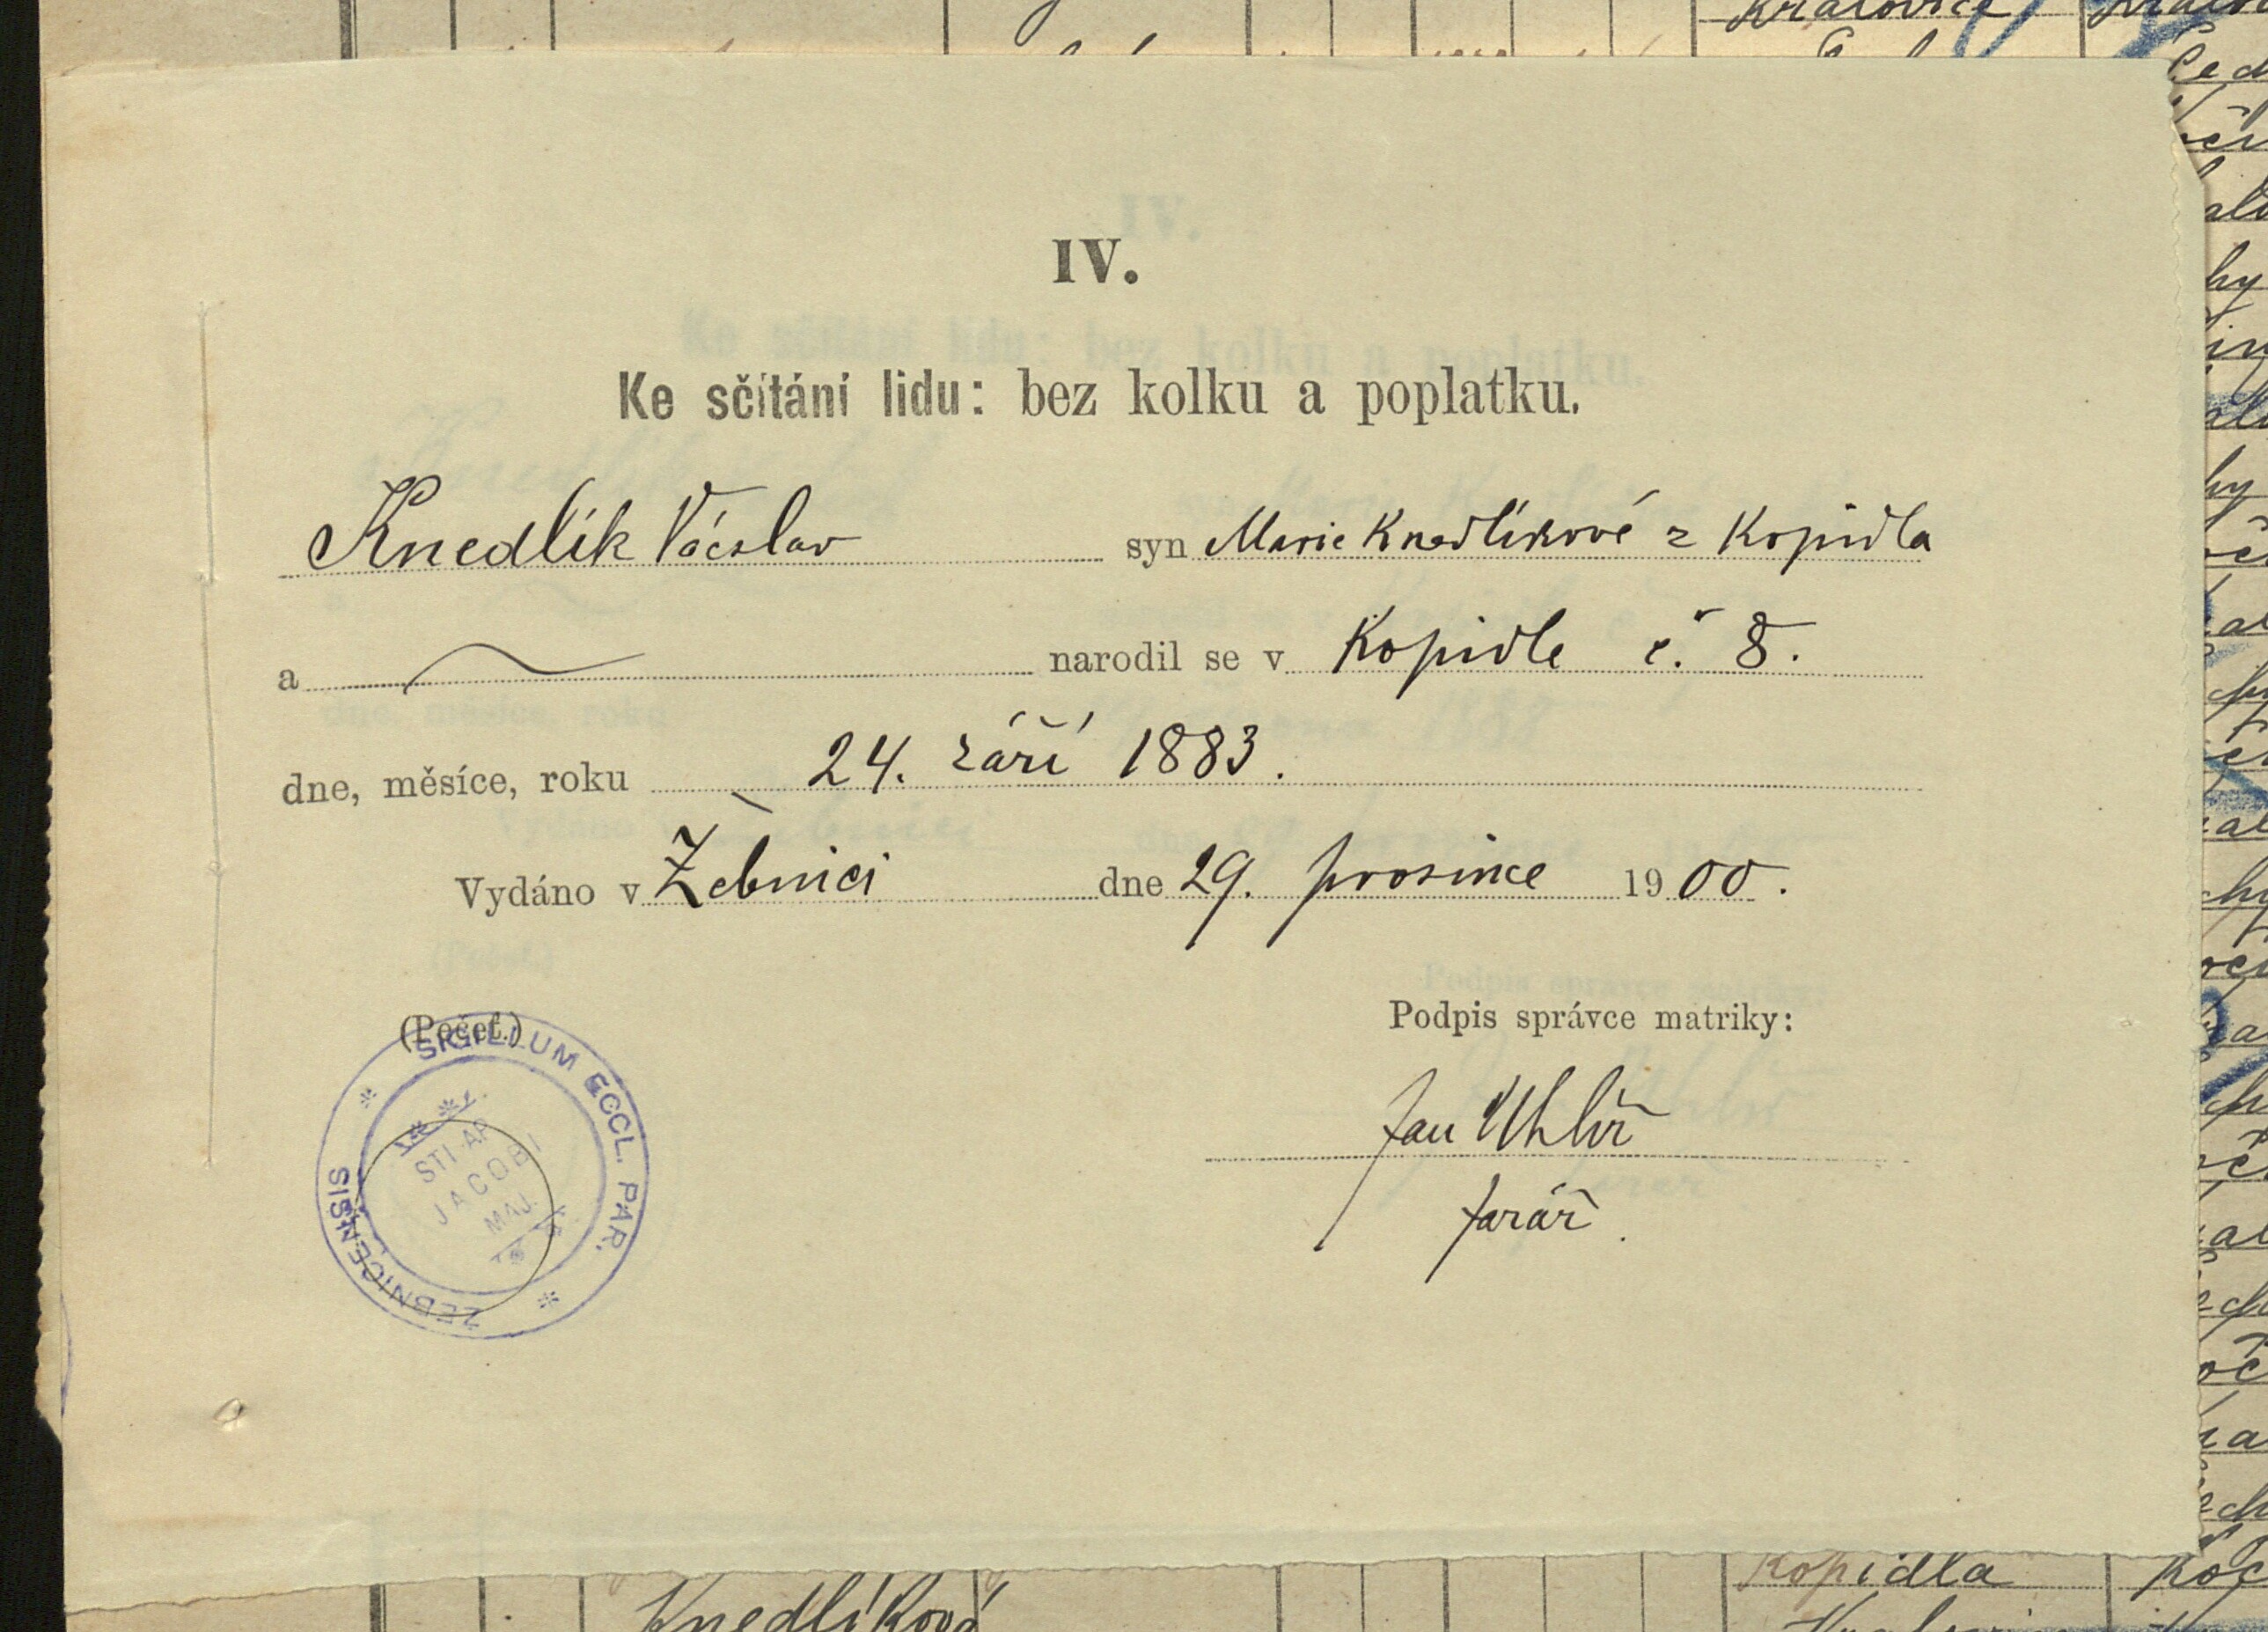 Kralovice
IV.
Ke sčítání lidu: bez kolku a poplatku.
Knedlík Václav syn Marie Knedlíkové z Kopidla
a narodil se v Kopidle č. 8.
dne, měsíce, roku 24. září 1883.
Vydáno v Žebnici dne 29. prosince 1900.
(Pečeť.)
Podpis správce matriky:
SIGILLUM ECCL. PAR. ŽEBNICENSIS
STI AP.
JACOBI
MAJ.
Jan Uhlíř
farář.
Kopidla
Knedlíková